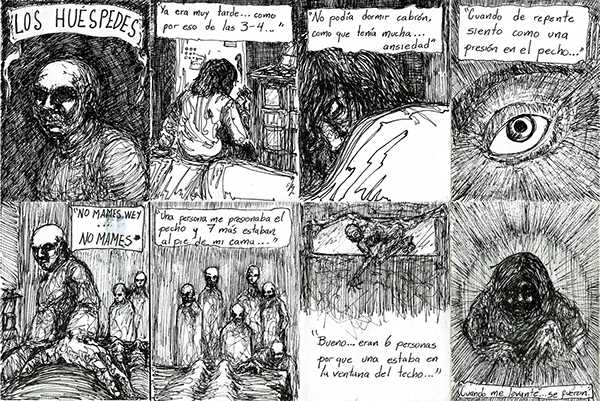 "LOS HUÉSPEDES"
"Ya era muy tarde... como
por eso de las 3-4..."
"No podía dormir cabrón,
como que tenía mucha...
ansiedad"
"Cuando de repente
siento como una
presión en el pecho..."
"NO MAMES, WEY
...
NO MAMES"
"Una persona me presionaba el
pecho y 7 más estaban
al pie de mi cama..."
"Bueno... eran 6 personas
por que una estaba en
la ventana del techo..."
"Cuando me levanté... se fueron"